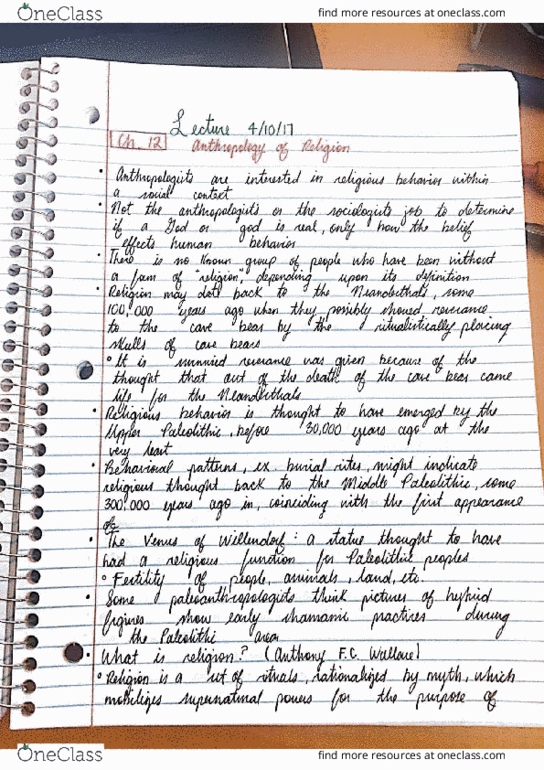 OneClass
find more resources at oneclass.com
Lecture 4/10/17
Ch. 12 Anthropology of Religion
• Anthropologists are interested in religious behavior within
a social context
• Not the anthropologists or the sociologists job to determine
if a God or god is real, only how the belief
effects human behavior
• There is no known group of people who have been without
a form of "religion", depending upon its definition
• Religion may date back to the Neanderthals, some
100,000 years ago when they possibly showed reverance
to the cave bear by the ritualistically placing
skulls of cave bears
° It is reverance was given because of the
thought that out of the death of the cave bear came
life for the Neanderthals
• Religious behavior is thought to have emerged by the
Upper Paleolithic, before 30,000 years ago at the
very least
• Behavioral patterns, ex. burial rites, might indicate
religious thought back to the Middle Paleolithic, some
300,000 years ago in, coinciding with the first appearance
of
• The Venus of Willendorf: a statue thought to have
had a religious function for Paleolithic peoples
° Fertility of people, animals, land, etc.
• Some paleoanthropologists think pictures of hybrid
figures show early shamanic practices during
the Paleolithic area
• What is religion? (Anthony F.C. Wallace)
° Religion is a set of rituals, rationalized by myth, which
mobilizes supernatural powers for the purpose of
OneClass
find more resources at oneclass.com